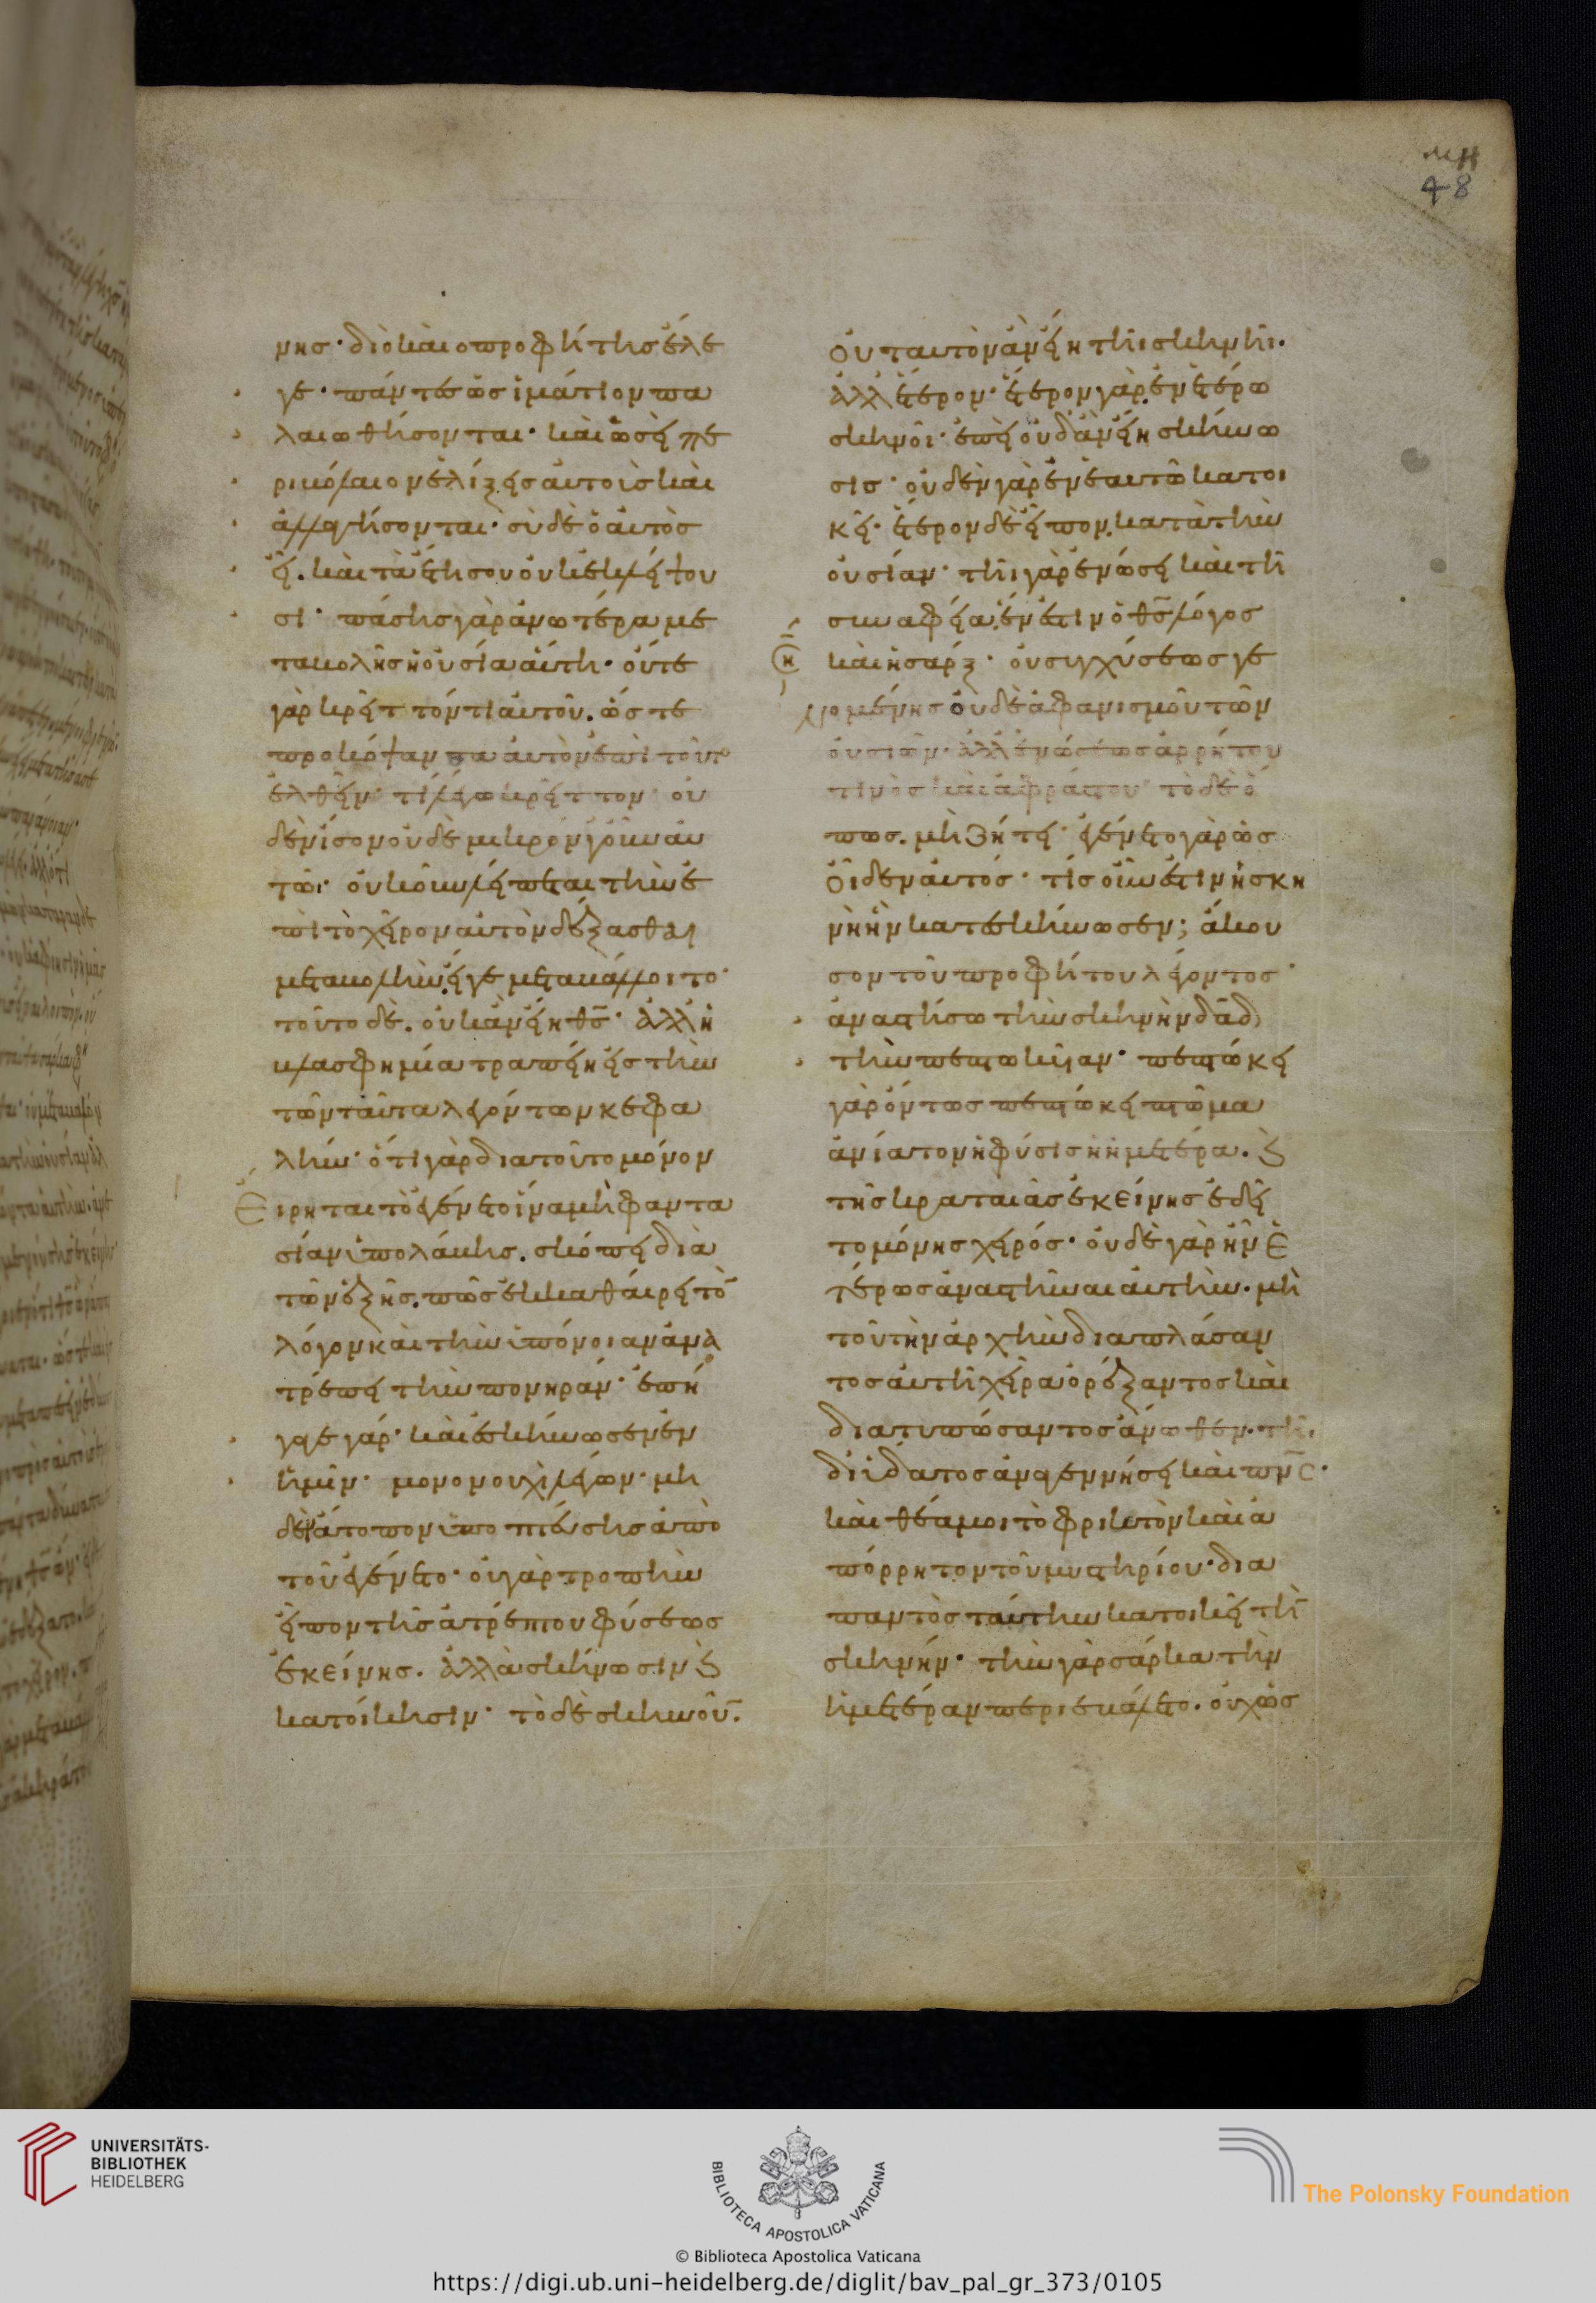 μης· διὸ καὶ ὁ προφήτης ἔλε
γε· πάντες ὡς ἱμάτιον πα
λαιωθήσονται· καὶ ὡσεὶ πε
ριβόλαιον ἑλίξεις αὐτοὺς καὶ
ἀλλαγήσονται· σὺ δὲ ὁ αὐτὸς
εἶ. καὶ τὰ ἔτη σου οὐκ ἐκλείψου
σι· πάσης γὰρ ἀνωτέρα με
ταβολῆς ἡ οὐσία αὕτη· οὔτε
γὰρ κρεῖττόν τι αὐτοῦ. ὥστε
προκόψαντα αὐτὸν ἐπὶ τοῦτο
ἐλθεῖν· τί λέγω κρεῖττον· οὐ
δὲν ἴσον οὐδὲ μικρὸν γοῦν αὐ
τῶι· οὐκοῦν λείπεται τὴν ἐ
πὶ τὸ χεῖρον αὐτὸν δέξασθαι
μεταβολὴν, εἴγε μεταβάλλοιτο·
τοῦτο δὲ. οὐκ ἂν εἴη θ̅ς̅· ἀλλ' ἡ
βλασφημία τραπείη εἰς τὴν
τῶν ταῦτα λεγόντων κεφα
λήν· ὅτι γὰρ διατοῦτο μόνον
Εἴρηται τὸ ἐγένετο ἵνα μὴ φαντα
σίαν ὑπολάβης. σκόπει διὰ
τῶν ἑξῆς. πῶς ἐκκαθαίρει τὸ̅
λόγον καὶ τὴν ὑπόνοιαν ἀνα
τρέπει τὴν πονηράν· ἐπή
γαγε γάρ· καὶ ἐσκήνωσεν ἐν
ἡμῖν· μονονουχὶ λέγων· μη
δὲν ἄτοπον ὑποπτεύσης ἀπὸ
τοῦ ἐγένετο· οὐ γὰρ τροπὴν
εἶπον τῆς ἀτρέπτου φύσεως
ἐκείνης. ἀλλὰ σκήνωσιν ϗ
κατοίκησιν· τὸ δὲ σκηνοῦν̅.
μη
48
οὐ ταυτὸν ἂν εἴη τῆι σκηνῆι·
ἀλλ' ἕτερον· ἕτερον γὰρ ἐν ἑτέρω
σκηνοῖ· ἐπεὶ οὐδ' ἂν εἴη σκήνω
σις· οὐδὲν γὰρ ἐν ἑαυτῶ κατοι
κεῖ· ἕτερον δὲ εἶπον. κατὰ τὴν
οὐσίαν· τῆι γὰρ ἑνώσει καὶ τῆ
συναφεία. ἕν ἐστιν ὁ θ̅ς̅ λόγος
καὶ ἡ σάρξ· οὐ συγχύσεως γε
νομένης οὐδὲ ἀφανισμοῦ τῶν
οὐσιῶν· ἀλλ' ἑνώσεως ἀρρήτου
τινὸς καὶ ἀφράστου· τὸ δὲ ὅ
πως. μὴ ζήτει· ἐγένετο γὰρ ὡς
οἶδεν αὐτός· τίς οὖν ἐστιν ἡ σκη
νὴ ἣν κατεσκήνωσεν; ἄκου
σον τοῦ προφήτου λέγοντος·
ἀναστήσω τὴν σκηνὴν δ̅α̅δ̅
τὴν πεπτωκυῖαν· πεπτώκει
γὰρ ὄντως πεπτώκει πτῶμα
ἀνίατον ἡ φύσις ἡ ἡμετέρα. ϗ
τῆς κραταιᾶς ἐκείνης ἐδεῖ
το μόνης χειρός· οὐδὲ γὰρ ἦν ἑ
τέρως ἀναστῆναι αὐτὴν. μὴ
τοῦ τὴν ἀρχὴν διαπλάσαν
τος αὐτῆ χεῖρα ὀρέξαντος καὶ
διατυπώσαντος ἄνωθεν. τῆι
δι' ὕδατος ἀναγεννήσει καὶ π̅ν̅ς̅.
καὶ θέα μοι τὸ φρικτὸν καὶ ἀ
πόρρητον τοῦ μυστηρίου· δια
παντὸς ταύτην κατοικεῖ τὴ̅
σκηνήν· τὴν γὰρ σάρκα τὴν
ἡμετέραν περιεβάλετο. οὐχ ὡς
UNIVERSITÄTS-
BIBLIOTHEK
HEIDELBERG
BIBLIOTECA APOSTOLICA VATICANA
The Polonsky Foundation
© Biblioteca Apostolica Vaticana
https://digi.ub.uni-heidelberg.de/diglit/bav_pal_gr_373/0105